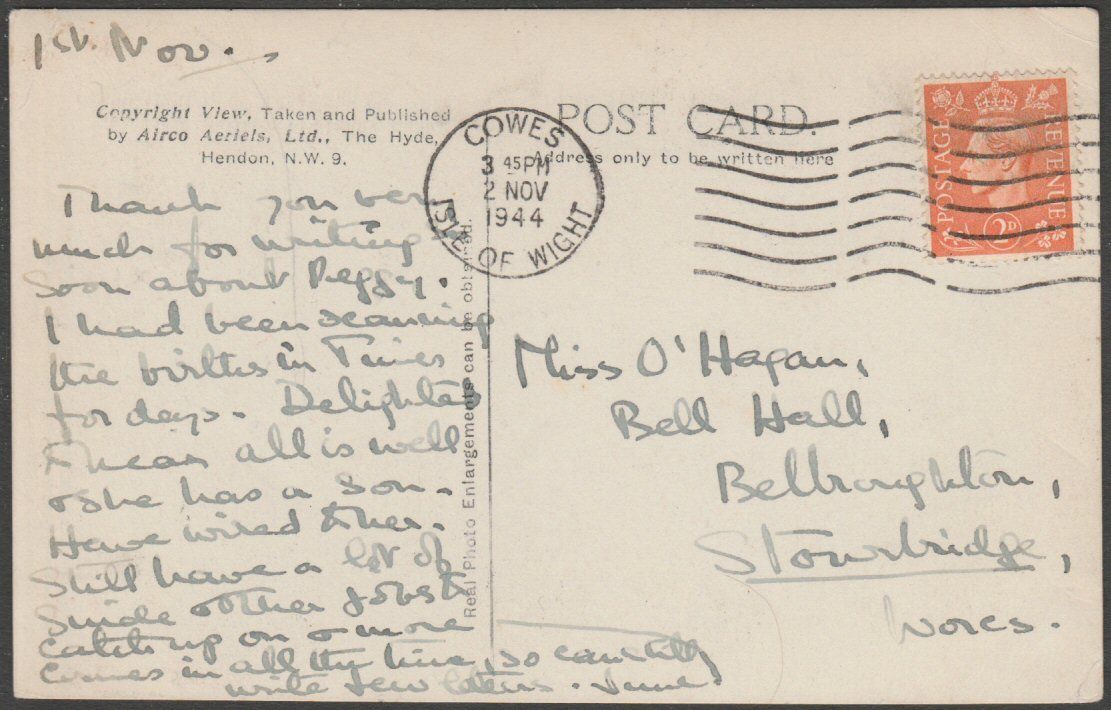 1st. Nov.
Copyright View, Taken and Published
by Airco Aeriels, Ltd., The Hyde,
Hendon, N.W. 9.
POST CARD.
Address only to be written here
COWES
3 45 PM
2 NOV
1944
ISLE OF WIGHT
POSTAGE
REVENUE
2D
Thank you very
much for writing
soon about Peggy.
I had been scanning
the births in Times
for days. Delighted
to hear all is well
& she has a son.
Have wired to her.
Still have a lot of
other jobs to
catch up on & more
comes in all the time, so
write few letters.
Real Photo Enlargements can be obtained.
Miss O'Hagan,
Bell Hall,
Bellroughton,
Stourbridge,
Worcs.